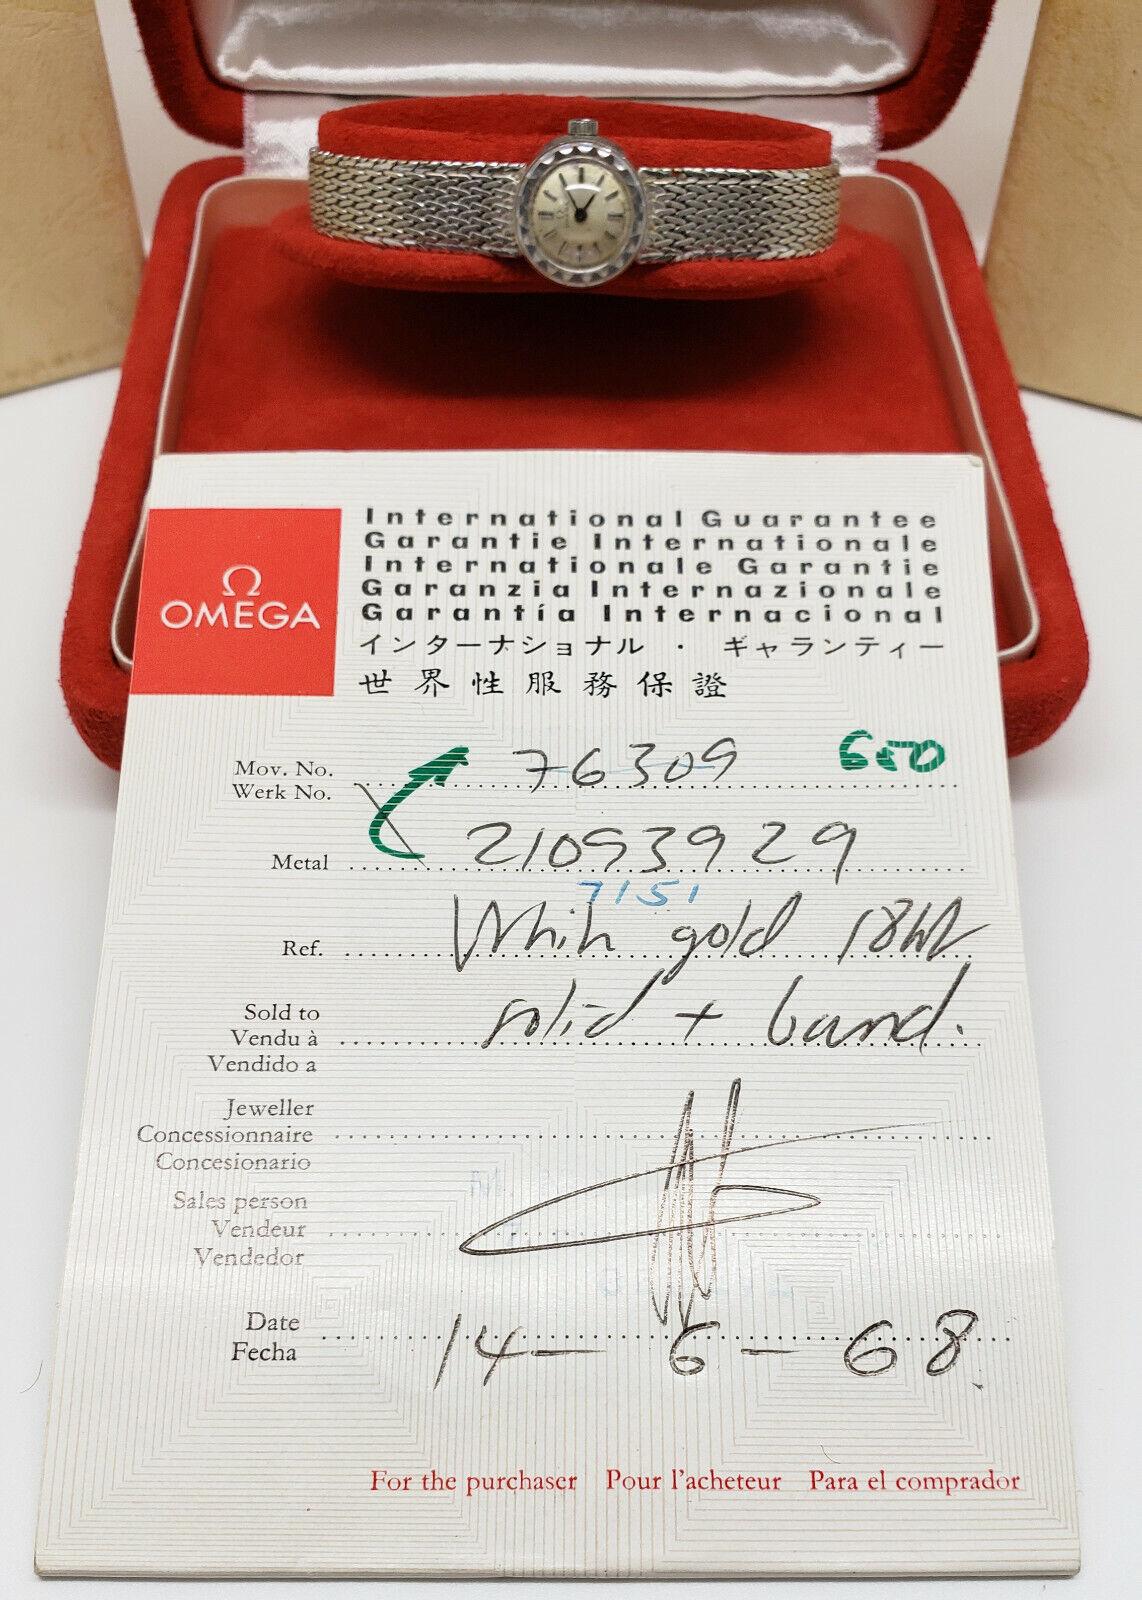 Ω
OMEGA
International Guarantee
Garantie Internationale
Internationale Garantie
Garanzia Internazionale
Garantía Internacional
インターナショナル ・ ギャランティー
世界性服務保證
Mov. No. 76309 650
Werk No.
Metal 21093929
7151
Ref. White gold 18kt
Sold to solid + band.
Vendu à
Vendido a
Jeweller
Concessionnaire
Concesionario
Sales person
Vendeur
Vendedor
Date 14-6-68
Fecha
For the purchaser Pour l'acheteur Para el comprador